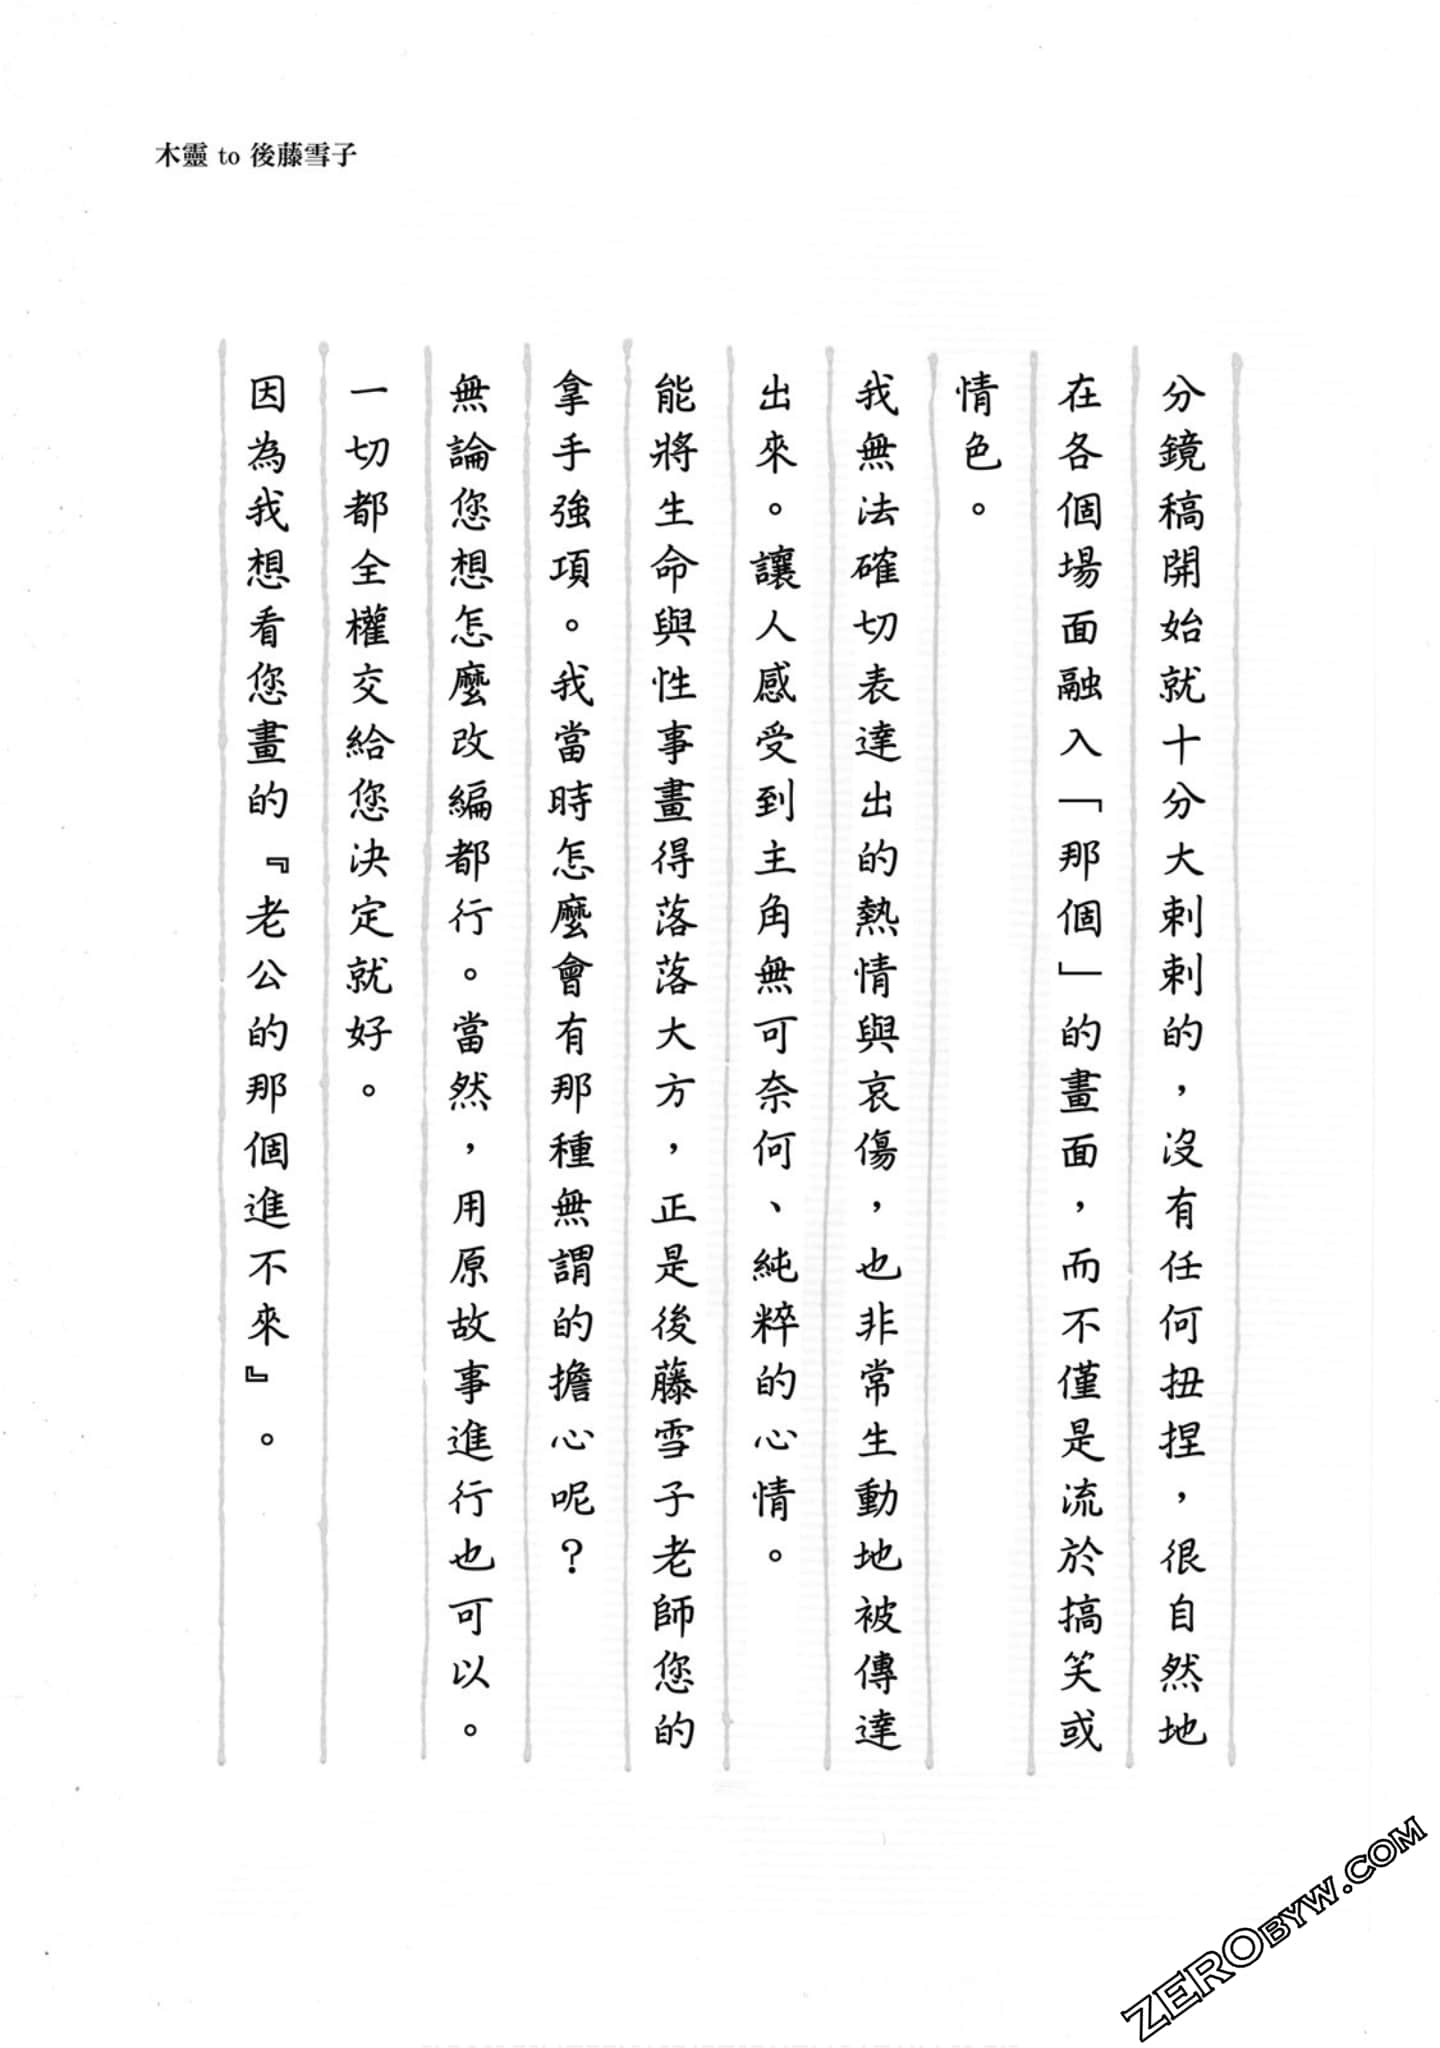 木靈 to 後藤雪子
分鏡稿開始就十分大剌剌的，沒有任何扭捏，很自然地
在各個場面融入「那個」的畫面，而不僅是流於搞笑或
情色。
我無法確切表達出的熱情與哀傷，也非常生動地被傳達
出來。讓人感受到主角無可奈何、純粹的心情。
能將生命與性事畫得落落大方，正是後藤雪子老師您的
拿手強項。我當時怎麼會有那種無謂的擔心呢？
無論您想怎麼改編都行。當然，用原故事進行也可以。
一切都全權交給您決定就好。
因為我想看您畫的『老公的那個進不來』。
ZEROBYW.COM